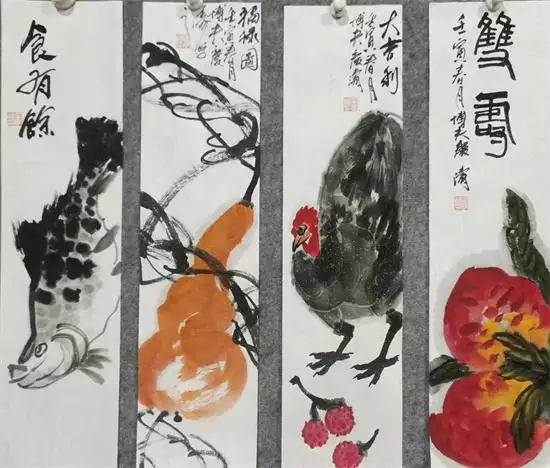 食有餘
福禄圖
壬寅春月
博夫嚴
大吉利
壬寅春月
博夫嚴濤
雙壽
壬寅春月博夫嚴濤